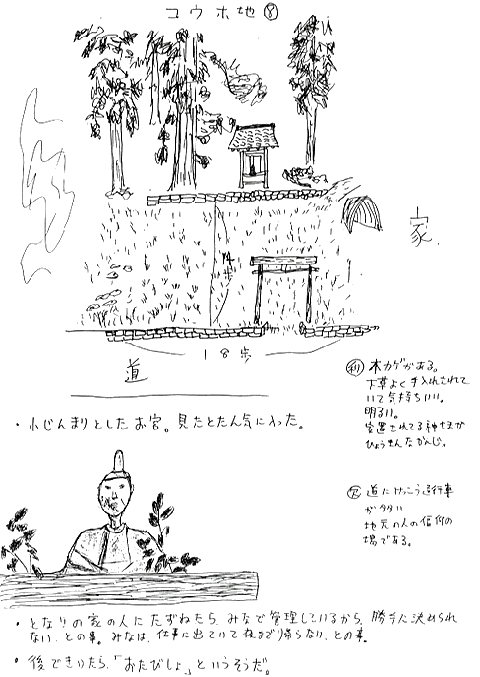 コウホ地⑧
家
14歩
18歩
道
・小じんまりとしたお宮。見たとたん気に入った。
㋑ 木カゲがある。
下草よく手入れされて
いて気持ちいい。
明るい。
安置されてる神さまが
ひょうきんなかんじ。
道にけっこう通行車
が多い
地元の人の信仰の
場である。
・となりの家の人にたずねたら、みんなで管理しているから、勝手に決められ
ない、との事。みんなは、仕事に出ていて夜まで帰らない、との事。
・後できいたら、「おたびしょ」というそうだ。